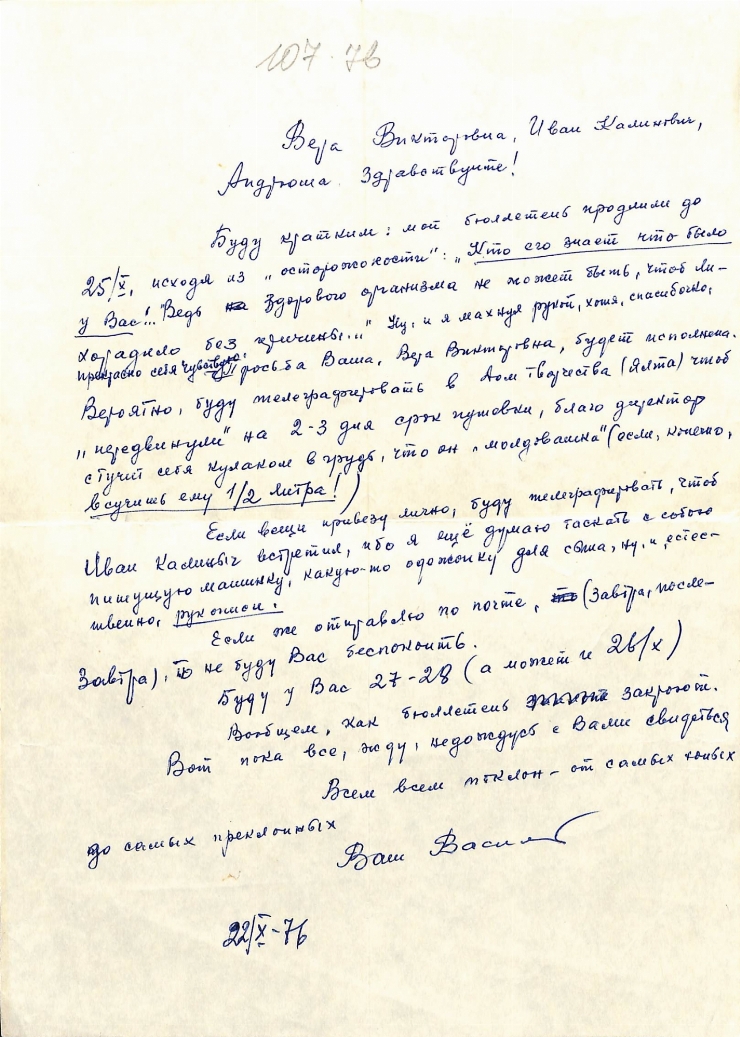 107.76
Вера Викторовна, Иван Калинович,
Андрюша. Здравствуйте!
Буду кратким: мой бюллетень продлили до
25/X, исходя из „осторожности": „Кто его знает что было
у Вас!.. Ведь на здорового организма не может быть, чтоб ли-
хорадило без причины..." Ну, и я махнул рукой, хотя, спасибочко,
прекрасно себя чувствую.
Просьба Ваша, Вера Викторовна, будет исполнена.
Вероятно, буду телеграфировать в Дом творчества (Ялта) чтоб
„передвинули" на 2-3 дня срок путовки, благо директор
стучит себя кулаком в грудь, что он „молдовашка" (если, конешно,
всучишь ему 1/2 литра!)
Если вещи привезу лично, буду телеграфировать, чтоб
Иван Калиныч встретил, ибо я ещё думаю таскать с собою
пишущую машинку, какую-то одёжонку для сына, ну, и, естес-
твенно, рукописи.
Если же отправлю по почте, то (завтра, после-
завтра), то не буду Вас беспокоить.
Буду у Вас 27-28 (а может и 26/X)
Вообщем, как бюллетень закроют.
Вот пока все, жду, недождусь с Вами свидеться
Всем всем поклон - от самых юных
до самых преклонных
Ваш Васил
22/X-76